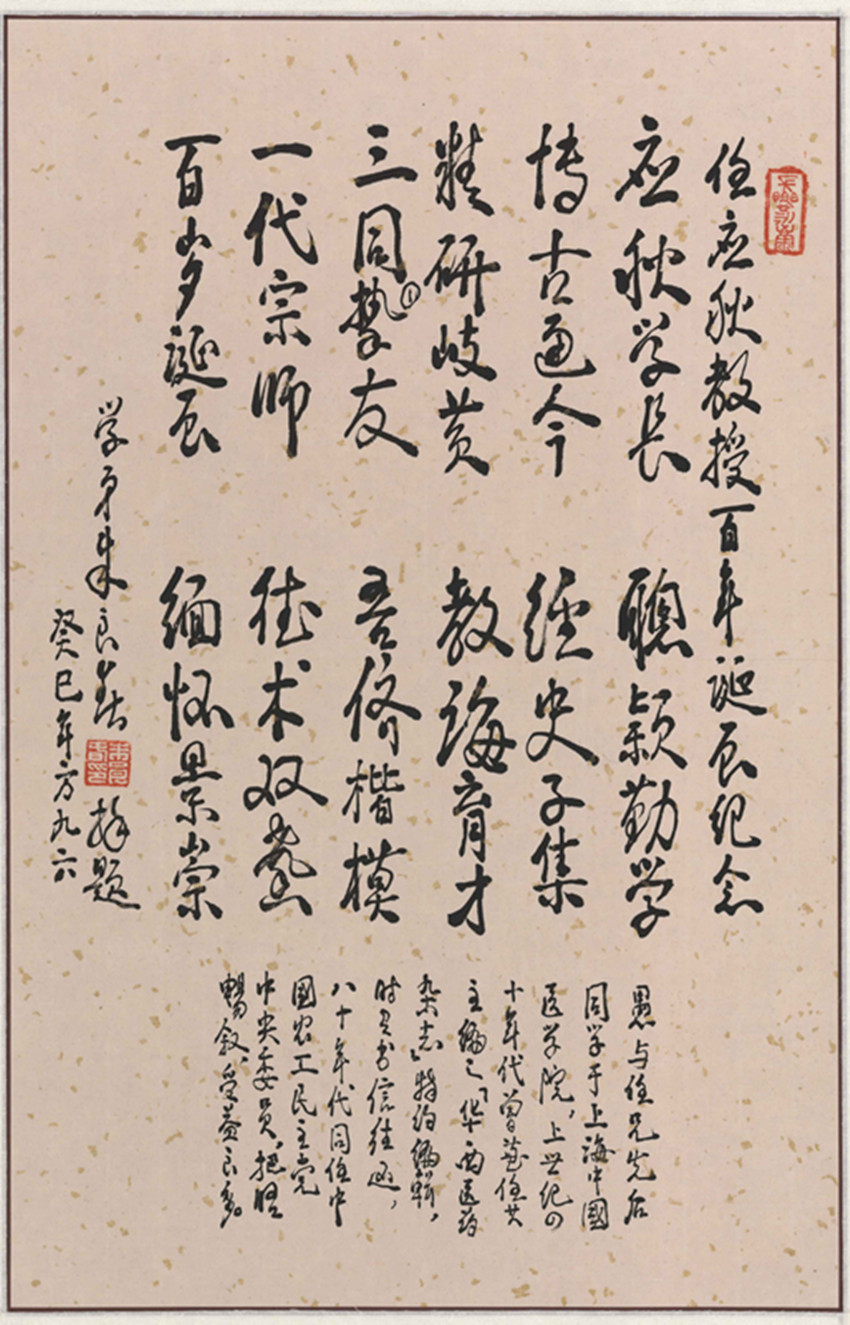 任应秋教授百年诞辰纪念
应秋学长 聪颖勤学
博古通今 经史子集
精研岐黄 教诲育才
三同挚友① 吾侪楷模
一代宗师 德术双馨
百岁诞辰 缅怀景崇
学弟朱良春 拜题
癸巳年方九六
愚与任兄先后
同学于上海中國
医学院,上世纪四
十年代曾荷任其
主编之「华西医药
杂志」特约编辑,
时有书信往还,
八十年代同任中
國农工民主党
中央委员,把晤
畅叙,受益良多。